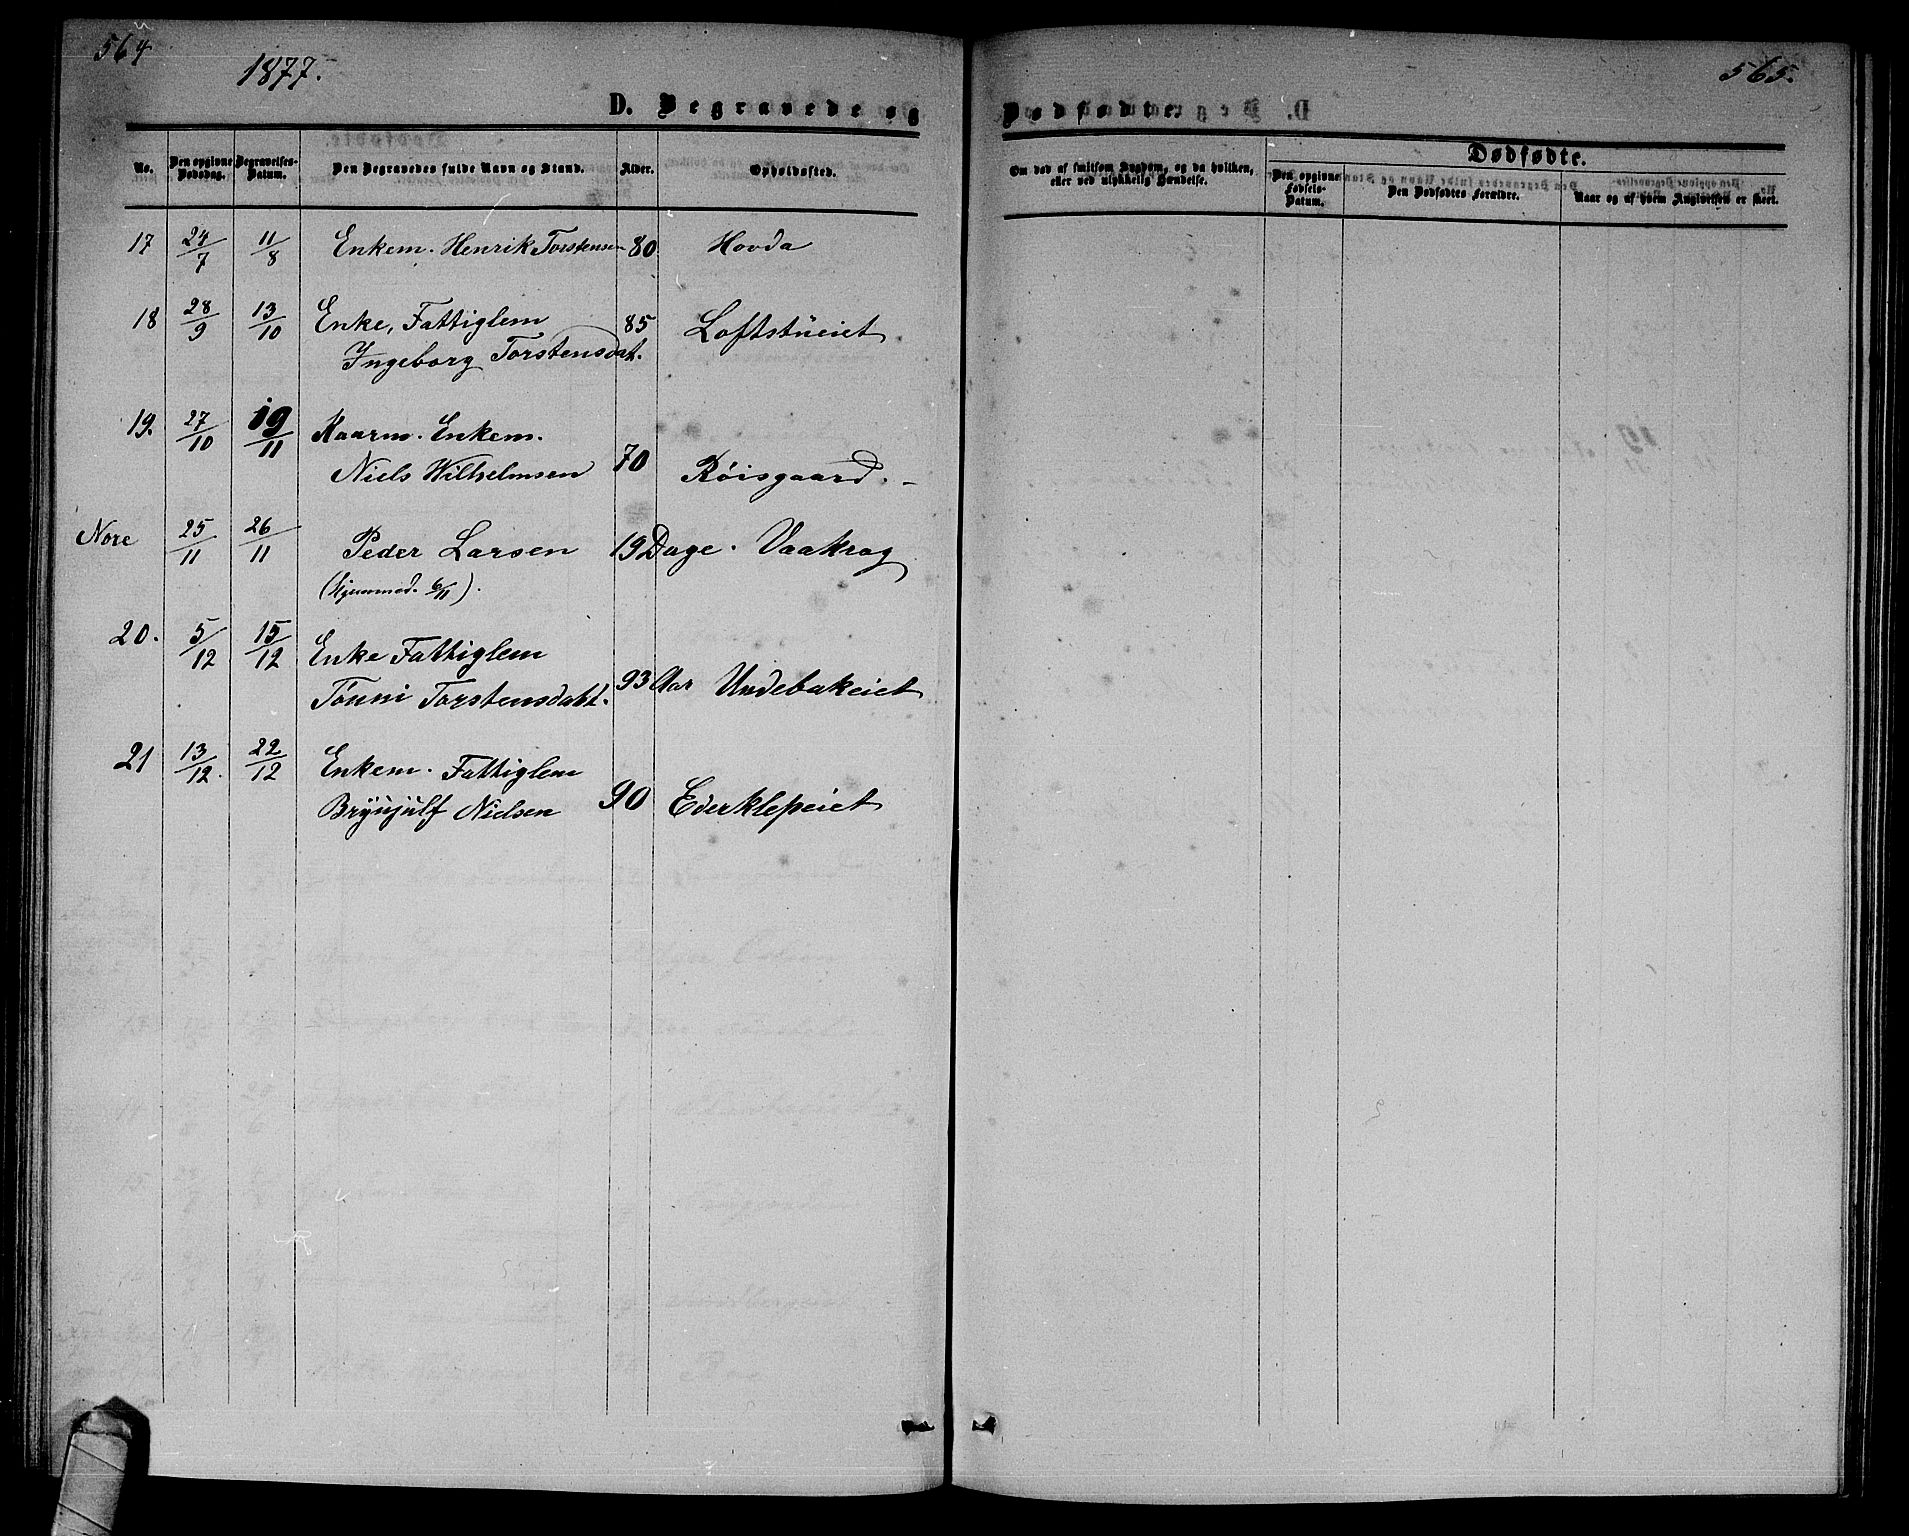 564
1877.
565.
D. Begravede og
Dødfødte.
No.
Den opgivne Dødsdag.
Begravelses-Datum.
Den Begravedes fulde Navn og Stand.
Alder.
Opholdssted.
Om død af smitsom Sygdom, og da hvilken,
eller ved ulykkelig Hændelse.
Dødfødte.
Den opgivne Fødsels-Datum.
Den Dødfødtes Forældre.
Naar og af hvem Angivelsen er skeet.
17 24/7 11/8 Enkem. Henrik Torstensen 80 Hovda
18 28/9 13/10 Enke, Fattiglem 85 Loftstueiet.
Ingeborg Torstensdat.
19. 27/10 19/11 Kaarm. Enkem.
Niels Wilhelmsen 70 Røisgaard.
Nore 25/11 26/11 Peder Larsen 19 Dage. Vaakrag
(Hjemmed. 6/11).
20. 5/12 15/12 Enke Fattiglem
Tonni Torstensdatt. 93 Aar Undebakeiet
21 13/12. 22/12 Enkem. Fattiglem
Brynjulf Nielsen 90 Ederklepeiet